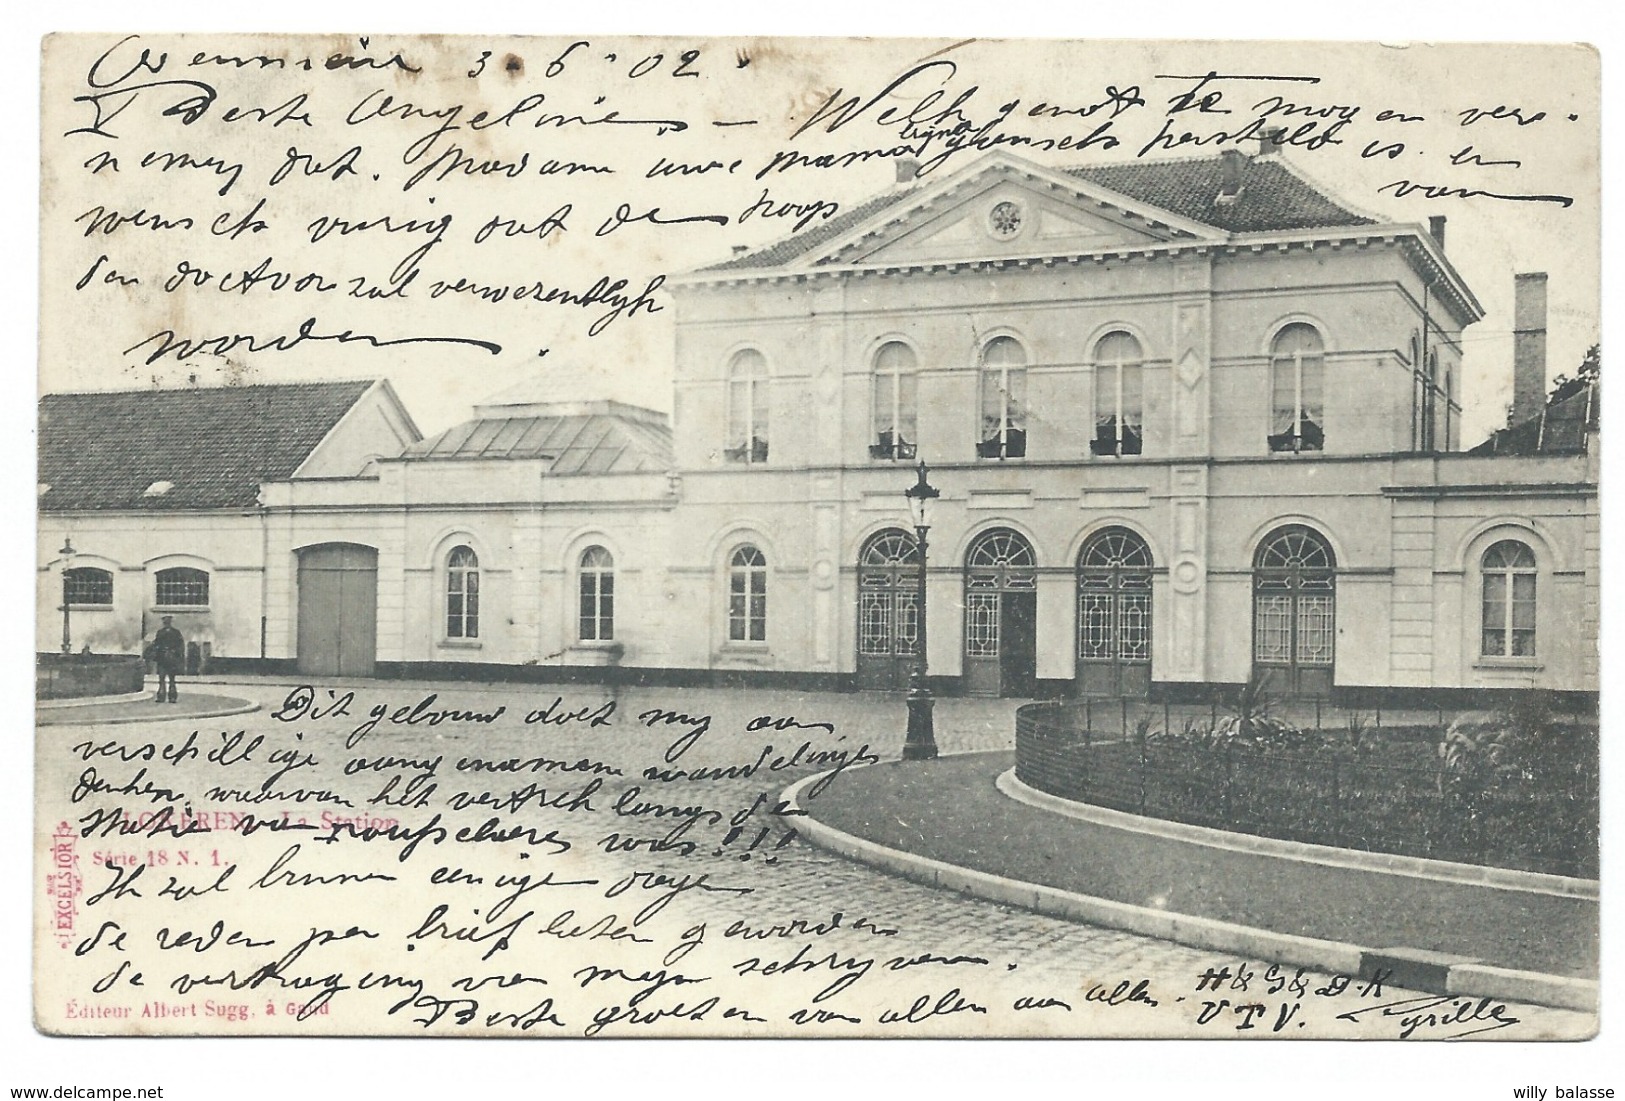 3 - 6 - 02.
Beste Angeline, - Welk genot te mogen ver-
nemen dat. Madame uwe mama bijna gansch hersteld is en
wensch vurig dat de hoop van
den doctoor zal verwezentlijk
worden.
Dit gebouw doet mij aan
verschillige aangenamen wandelinges
denken, waarvan het vertrek langs de
statie van was!!!
Ik zal binnen eenige dagen
de reden per brief laten geworden
de vertraging van mijn schrijven.
Beste groeten van allen aan allen. H & G & D. K
V T V. Cyrille
LOKEREN - La Station
Série 18 N. 1.
EXCELSIOR
Éditeur Albert Sugg, à Gand
willy balasse
delcampe.net